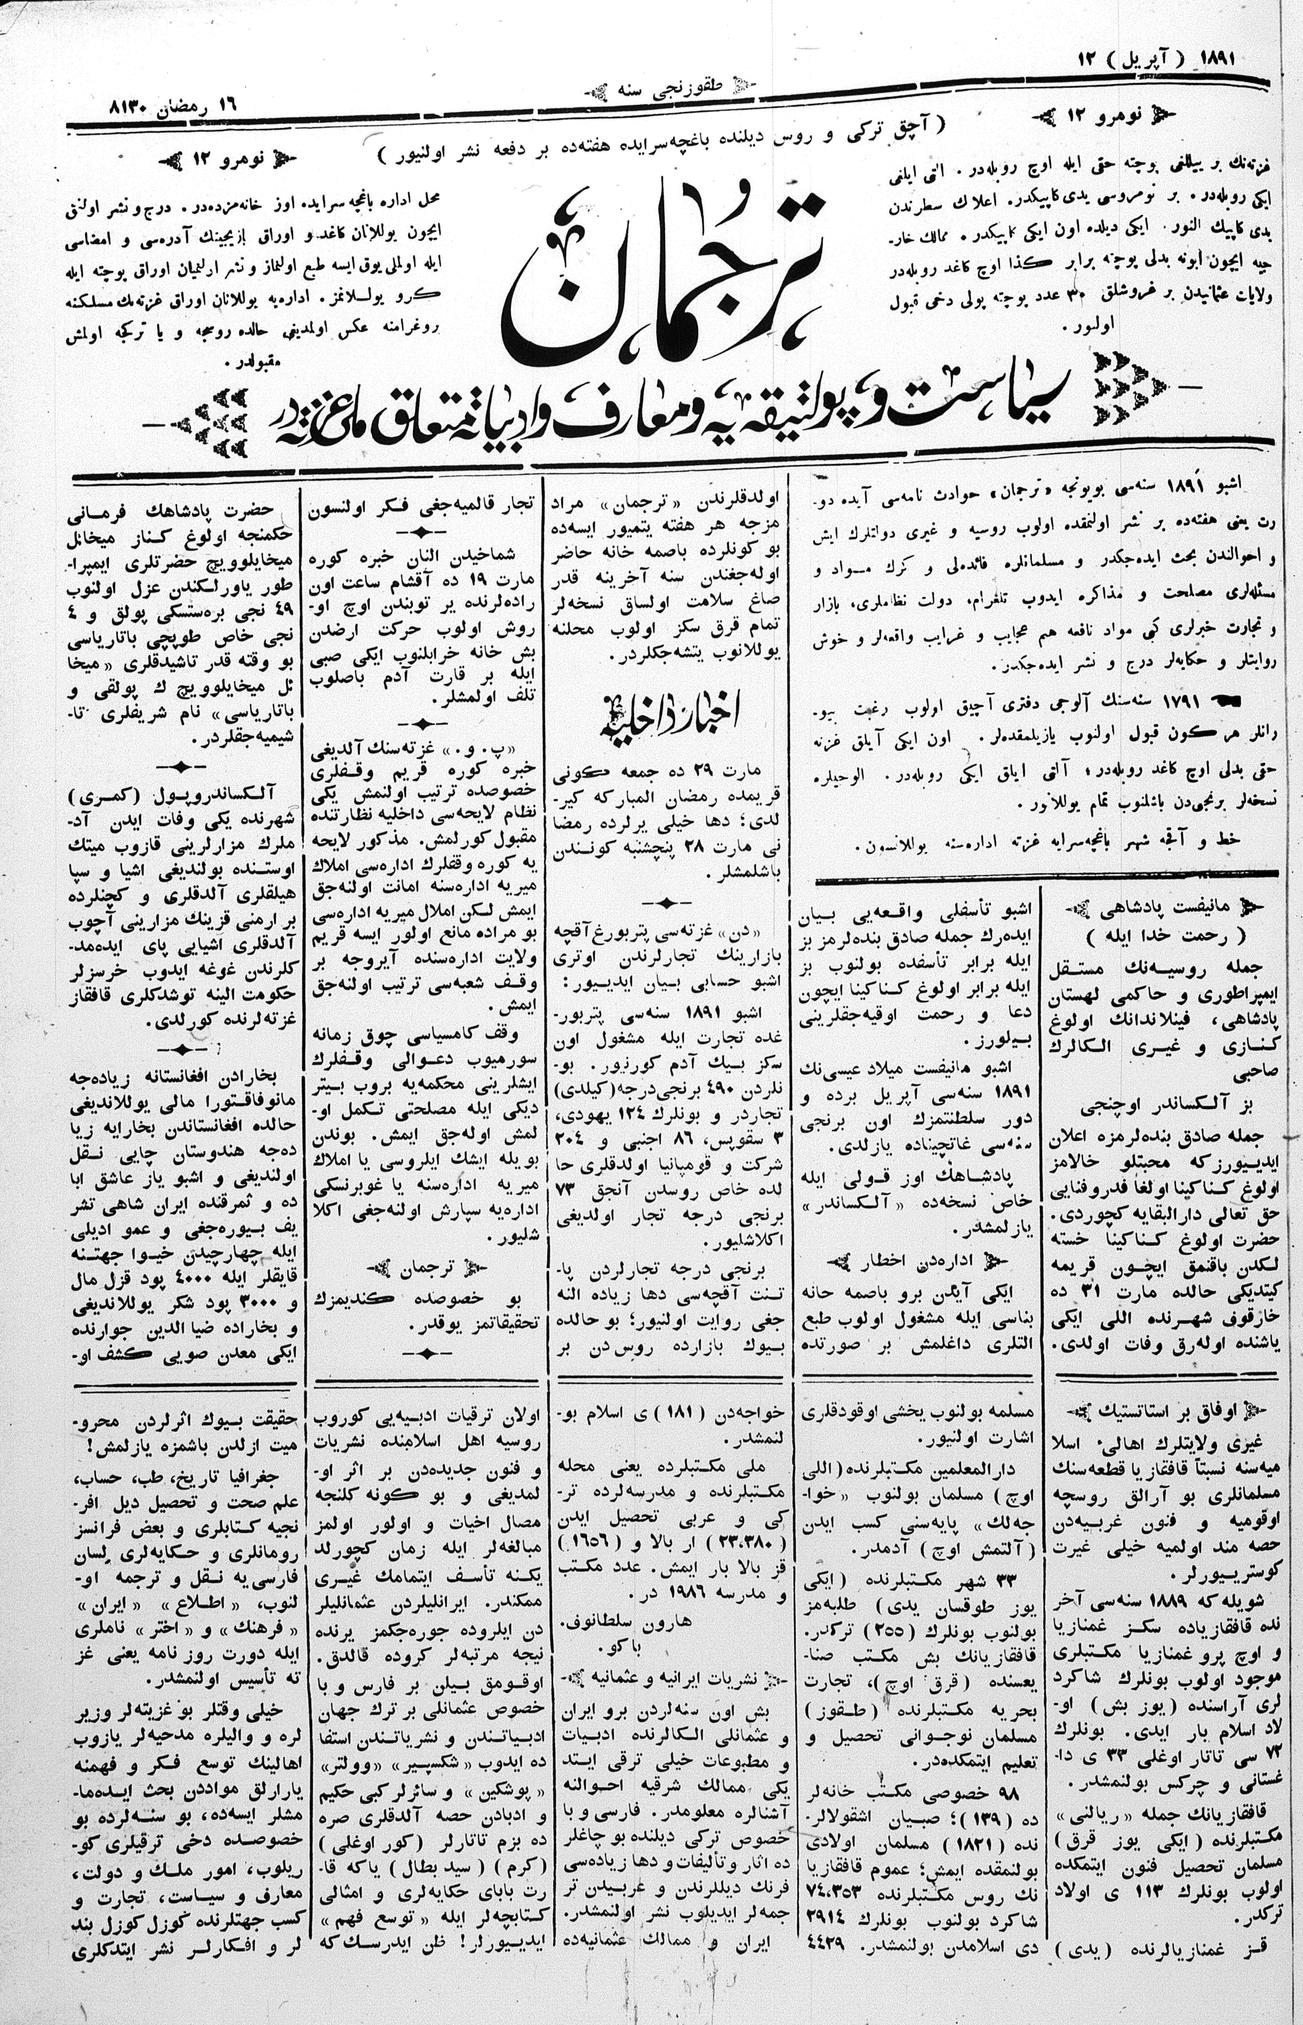 ١٨٩١ ( آپریل ) ١٢
طقوزنجی سنه
١٦ رمضان ٨١٣٠
نومرو ١٢
( آچق ترکی و روس دیلنده باغچه‌سرایده هفته‌ده بر دفعه نشر اولنیور )
نومرو ١٢
غزته‌نك بر ییللغی پوچته حقی ایله اوچ روبله‌در. التی ایلغی
ایکی روبله‌در. بر نومروسی یدی کاپیکدر. اعلاك سطرندن
یدی کاپیك النور. ایکی دیلده اون ایکی کاپیکدر. ممالك خار-
جیه ایچون ابونه بدلی پوچته برابر کذا اوچ کاغد روبله‌در
ولایات عثمانیدن بر غروشلق ٣٠ عدد پوچته پولی دخی قبول
اولور.
ترجمان
محل اداره باغچه سرایده اوز خانه‌مزده‌در. درج و نشر اولنق
ایچون یوللانان کاغد و اوراق یازیجینك آدره‌سی و امضاسی
ایله اولملی یوق ایسه طبع اولنماز و نشر ارلنمیان اوراق پوچته ایله
کرو یوللانمز. اداره‌یه یوللانان اوراق غزته‌نك مسلکنه
پروغرامنه عکس اولمدیغی حالده روسجه و یا ترکجه اولمش
مقبولدر.
سیاست و پولتیقه‌یه و معارف و ادبیاته متعلق ملی غزته‌در
اشبو ١٨٩١ سنه‌سی بویونجه «ترجمان» حوادث نامه‌سی آیده دو-
رت یعنی هفته‌ده بر نشر اولنمقده اولوب روسیه و غیری دولتلرك ایش
و احوالندن بحث ایده‌جکدر و مسلمانلره فائده‌لی و کرك مواد و
مسئله‌لری مصلحت و مذاکره ایدوب تلغرام، دولت نظاملری، بازار
و تجارت خبرلری کبی مواد نافعه هم عجایب و غرایب واقعه‌لر و خوش
روایتلر و حکایه‌لر درج و نشر ایده‌جکدر.
١٧٩١ سنه‌سنك آلوجی دفتری آچیق اولوب رغبت بیو-
رانلر هر کون قبول اولنوب یازیلمقده‌لر. اون ایکی آیلق غزته
حقی بدلی اوچ کاغد روبله‌در؛ آلتی ایلق ایکی روبله‌در. الوجیلره
نسخه‌لر برنجی‌دن باشلنوب تمام یوللانور.
خط و آقچه شهر باغچه‌سرایه غزته اداره‌سنه یوللانسون.
مانیفست پادشاهی
( رحمت خدا ایله )
جمله روسیه‌نك مستقل
ایمپراطوری و حاکمی لهستان
پادشاهی، فینلاندانك اولوغ
کنازی و غیری الکالرك
صاحبی
بز آلکساندر اوچنجی
جمله صادق بنده‌لرمزه اعلان
ایدیورزکه محبتلو خالامز
اولوغ کناکینا اولغا فدروفنایی
حق تعالی دارالبقایه کچوردی.
حضرت اولوغ کناکینا خسته
لکدن باقنمق ایچون قریمه
کیتدیکی حالده مارت ٣١ ده
خارقوف شهرنده اللی ایکی
یاشنده اوله‌رق وفات اولدی.
اشبو تأسفلی واقعه‌یی بیان
ایده‌رك جمله صادق بنده‌لرمز بز
ایله برابر تأسفده بولنوب بز
ایله برابر اولوغ کناکینا ایچون
دعا و رحمت اوقیه‌جقلرینی
بیلورز.
اشبو مانیفست میلاد عیسی‌نك
١٨٩١ سنه‌سی آپریل برده و
دور سلطنتمزك اون برنجی
سنه‌سی غاتچیناده یازلدی.
پادشاهك اوز قولی ایله
خاص نسخه‌ده «آلکساندر»
یازلمشدر.
اداره‌دن اخطار
ایکی آیدن برو باصمه خانه
بناسی ایله مشغول اولوب طبع
التلری داغلمش بر صورتده
اولدقلرندن «ترجمان» مراد
مزجه هر هفته یتمیور ایسه‌ده
بو کونلرده باصمه خانه حاضر
اوله‌جغندن سنه آخرینه قدر
صاغ سلامت اولساق نسخه‌لر
تمام قرق سکز اولوب محلنه
یوللانوب یتشه‌جکلردر.
اخبار داخلیه
مارت ٢٩ ده جمعه کونی
قریمده رمضان المبارکه کیر-
لدی؛ دها خیلی یرلرده رمضا
نی مارت ٢٨ پنچشنبه کونندن
باشلمشلر.
«دن» غزته‌سی پتربورغ آقچه
بازارینك تجارلرندن اوتری
اشبو حسابی بیان ایدییور:
اشبو ١٨٩١ سنه‌سی پتربور-
غده تجارت ایله مشغول اون
سکز بیك آدم کورنور. بو-
نلردن ٤٩٠ برنجی درجه (کیلدی)
تجاردر و بونلرك ١٢٤ یهودی،
٣ سقوپس، ٨٦ اجنبی و ٢٠٤
شرکت و قومپانیا اولدقلری حا
لده خاص روسدن آنجق ٧٣
برنجی درجه تجار اولدیغی
اکلاشلیور.
برنجی درجه تجارلردن پا-
تنت آقچه‌سی دها زیاده النه
جغی روایت اولنیور؛ بو حالده
بیوك بازارده روس‌دن بر
تجار قالمیه‌جغی فکر اولنسون
شماخیدن النان خبره کوره
مارت ١٩ ده آقشام ساعت اون
راده‌لرنده یر توبندن اوچ او-
روش اولوب حرکت ارضدن
بش خانه خرابلنوب ایکی صبی
ایله بر قارت آدم باصلوب
تلف اولمشلر.
«پ. و.» غزته سنك آلدیغی
خبره کوره قریم وقفلری
خصوصده ترتیب اولنمش یکی
نظام لایحه‌سی داخلیه نظارتنده
مقبول کورلمش. مذکور لایحه
یه کوره وقفلرك اداره‌سی املاك
میریه اداره‌سنه امانت اولنه‌جق
ایمش لکن املال میریه اداره‌سی
بو مراده مانع اولور ایسه قریم
ولایت اداره‌سنده آیروجه بر
وقف شعبه‌سی ترتیب اولنه‌جق
ایمش.
وقف کامسیاسی چوق زمانه
سورمیوب دعوالی وقفلرك
ایشلرینی محکمه‌یه بروب بیتر
دیکی ایله مصلحتی تکمل او-
لمش اوله‌جق ایمش. بوندن
بویله ایشك ایلروسی یا املاك
میریه اداره‌سنه یا غوبرنسکی
اداره‌یه سپارش اولنه‌جغی اکلا
شلیور.
ترجمان
بو خصوصده کندیمزك
تحقیقاتمز یوقدر.
حضرت پادشاهك فرمانی
حکمنجه اولوغ کناز میخائل
میخایلوویچ حضرتلری ایمپرا-
طور یاورلکندن عزل اولنوب
٤٩ نجی بره‌ستسکی پولق و ٤
نجی خاص طوپچی باتاریاسی
بو وقته قدر تاشیدقلری «میخا
ئل میخایلوویچ ك پولقی و
باتاریاسی» نام شریفلری تا-
شیمیه‌جقلردر.
آلکساندروپول (کمری)
شهرنده یکی وفات ایدن آد-
ملرك مزارلرینی قازوب میتك
اوستنده بولندیغی اشیا و سپا
هیلقلری آلدقلری و کچنلرده
بر ارمنی قزینك مزارینی آچوب
آلدقلری اشیایی پای ایده‌مد-
کلرندن غوغه ایدوب خرسزلر
حکومت الینه توشدکلری قافقاز
غزته‌لرنده کورلدی.
بخارادن افغانستانه زیاده‌جه
مانوفاقتورا مالی یوللاندیغی
حالده افغانستاندن بخارایه زیا
ده‌جه هندوستان چایی نقل
اولندیغی و اشبو یاز عاشق ابا
ده و ثمرقنده ایران شاهی تشر
یف بیوره‌جغی و عمو ادیلی
ایله چهارچیدن خیوا جهتنه
قایقلر ایله ٤٠٠٠ پود قزل مال
و ٣٠٠٠ پود شکر یوللاندیغی
و بخاراده ضیا الدین جوارنده
ایکی معدن صویی کشف او-
اوفاق بر استاتستیك
غیزی ولایتلرك اهالیء اسلا
میه‌سنه نسبتاً قافقازیا قطعه‌سنك
مسلمانلری بو آرالق روسچه
اوقومیه و فنون غربیه‌دن
حصه مند اولمیه خیلی غیرت
کوستریورلر.
شویله که ١٨٨٩ سنه‌سی آخر
نده قافقازیاده سکز غمنازیا
و اوچ پرو غمنازیا مکتبلری
موجود اولوب بونلرك شاکرد
لری آراسنده (یوز بش) او-
لاد اسلام بار ایدی. بونلرك
٧٢ سی تاتار اوغلی ٣٣ ی دا-
غستانی و چرکس بولنمشدر.
قافقازیانك جمله «ریالنی»
مکتبلرنده (ایکی یوز قرق)
مسلمان تحصیل فنون ایتمکده
اولوب بونلرك ١١٣ ی اولاد
ترکدر.
قز غمنازیالرنده (یدی)
مسلمه بولنوب یخشی اوقودقلری
اشارت اولنیور.
دارالمعلمین مکتبلرنده (اللی
اوچ) مسلمان بولنوب «خوا-
جه‌لك» پایه‌سنی کسب ایدن
(آلتمش اوچ) آدمدر.
٣٣ شهر مکتبلرنده (ایکی
یوز طوقسان یدی) طلبه‌مز
بولنوب بونلرك (٢٥٥) ترکدر.
قافقازیانك بش مکتب صنا-
یعسنده (قرق اوچ)، تجارت
بحریه مکتبلرنده (طقوز)
مسلمان نوجوانی تحصیل و
تعلیم ایتمکده‌در.
٩٨ خصوصی مکتب خانه‌لر
ده (١٣٩)؛ صبیان اشقولالر.
نده (١٨٢١) مسلمان اولادی
بولنمقده ایمش؛ عموم قافقازیا
نك روس مکتبلرنده ٧٤،٣٥٣
شاکرد بولنوب بونلرك ٢٩١٤
دی اسلامدن بولنمشدر. ٤٤٢٩
خواجه‌دن (١٨١) ی اسلام بو-
لنمشدر.
ملی مکتبلرده یعنی محله
مکتبلرنده و مدرسه‌لرده تر-
کی و عربی تحصیل ایدن
(٢٣،٣٨٠) ار بالا و (١٦٥٦)
قز بالا بار ایمش. عدد مکتب
و مدرسه ١٩٨٦ در.
هارون سلطانوف.
باکو.
نشریات ایرانیه و عثمانیه
بش اون سنه‌لردن برو ایران
و عثمانلی الکالرنده ادبیات
و مطبوعات خیلی ترقی ایتد
یکی ممالك شرقیه احوالنه
آشنالره معلومدر. فارسی و با
خصوص ترکی دیلنده بو چاغلر
ده اثار و تألیفات و دها زیاده‌سی
فرنك دیللرندن و عربیدن تر
جمه‌لر ایدیلوب نشر اولنمشدر.
ایران و ممالك عثمانیه‌ده
اولان ترقیات ادبیه‌یی کوروب
روسیه اهل اسلامنده نشریات
و فنون جدیده‌دن بر اثر او-
لمدیغی و بو کونه کلنجه
مصال اخیات و اولور اولمز
مبالغه‌لر ایله زمان کچورلد
یکنه تأسف ایتمامك غیری
ممکندر. ایرانیلردن عثمانلیلر
دن ایلروده جوره‌جکمز یرنده
نیجه مرتبه‌لر کروده قالدق.
اوقومق بیلن بر فارس و با
خصوص عثمانلی بر ترك جهان
ادبیاتندن و نشریاتندن استفا
ده ایدوب «شکسپیر» «وولتر»
«پوشکین» و سائرلر کبی حکیم
و ادبادن حصه آلدقلری صره
ده بزم تاتارلر (کور اوغلی)
(کرم) (سید بطال) یا که قا-
رت بابای حکایه‌لری و امثالی
کتابچه‌لر ایله «توسع فهم»
ایدیورلر! ظن ایدرسك که
حقیقت بیوك اثرلردن محرو-
میت ازلدن باشمزه یازلمش!
جغرافیا تاریخ، طب، حساب،
علم صحت و تحصیل دیل افر-
نجیه کتابلری و بعض فرانسز
رومانلری و حکایه‌لری لسان
فارسی‌یه نقل و ترجمه او-
لنوب، «اطلاع» «ایران»
«فرهنك» و «اختر» ناملری
ایله دورت روز نامه یعنی غز
ته تأسیس اولنمشدر.
خیلی وقتلر بو غزیته‌لر وزیر
لره و والیلره مدحیه‌لر یازوب
اهالینك توسع فکر و فهمنه
یارارلق موادد‌ن بحث ایده‌ما-
مشلر ایسه‌ده، بو سنه‌لرده بو
خصوصده دخی ترقیلری کو-
ریلوب، امور ملك و دولت،
معارف و سیاست، تجارت و
کسب جهتلرنده کوزل کوزل بند
لر و افکارلر نشر ایتدکلری